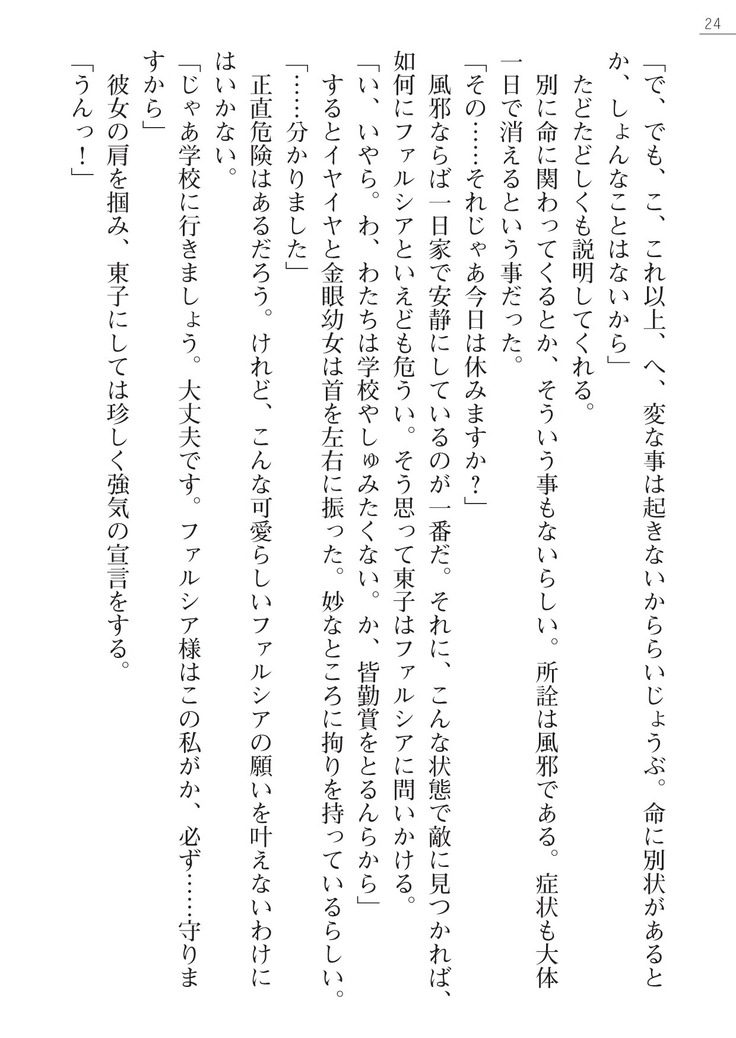 24
「で、でも、こ、これ以上、へ、変な事は起きないかららいじょうぶ。命に別状があると
か、しょんなことはないから」
たどたどしくも説明してくれる。
別に命に関わってくるとか、そういう事もないらしい。所詮は風邪である。症状も大体
一日で消えるという事だった。
「その……それじゃあ今日は休みますか?」
風邪ならば一日家で安静にしているのが一番だ。それに、こんな状態で敵に見つかれば、
如何にファルシアといえども危うい。そう思って東子はファルシアに問いかける。
「い、いやら。わ、わたちは学校やしゅみたくない。か、皆勤賞をとるんらから」
するとイヤイヤと金眼幼女は首を左右に振った。妙なところに拘りを持っているらしい。
「……分かりました」
正直危険はあるだろう。けれど、こんな可愛らしいファルシアの願いを叶えないわけに
はいかない。
「じゃあ学校に行きましょう。大丈夫です。ファルシア様はこの私がか、必ず……守りま
すから」
彼女の肩を掴み、東子にしては珍しく強気の宣言をする。
「うんっ!」